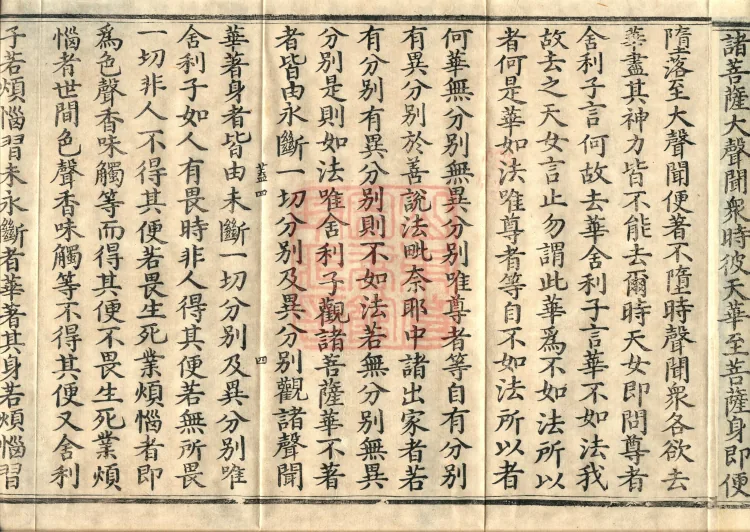 諸菩薩大聲聞衆時彼天華至菩薩身即便
墮落至大聲聞便著不墮時聲聞衆各欲去
華盡其神力皆不能去爾時天女即問尊者
舍利子言何故去華舍利子言華不如法我
故去之天女言止勿謂此華爲不如法所以
者何是華如法唯尊者等自不如法所以者
何華無分別無異分別唯尊者等自有分別
有異分別於善說法毗奈耶中諸出家者若
有分別有異分別則不如法若無分別無異
分別是則如法唯舍利子觀諸菩薩華不著
者皆由永斷一切分別及異分別觀諸聲聞
華著身者皆由未斷一切分別及異分別唯
蓋四
四
舍利子如人有畏時非人得其便若無所畏
一切非人不得其便若畏生死業煩惱者即
爲色聲香味觸等而得其便不畏生死業煩
惱者世間色聲香味觸等不得其便又舍利
子若煩惱習未永斷者華著其身若煩惱習